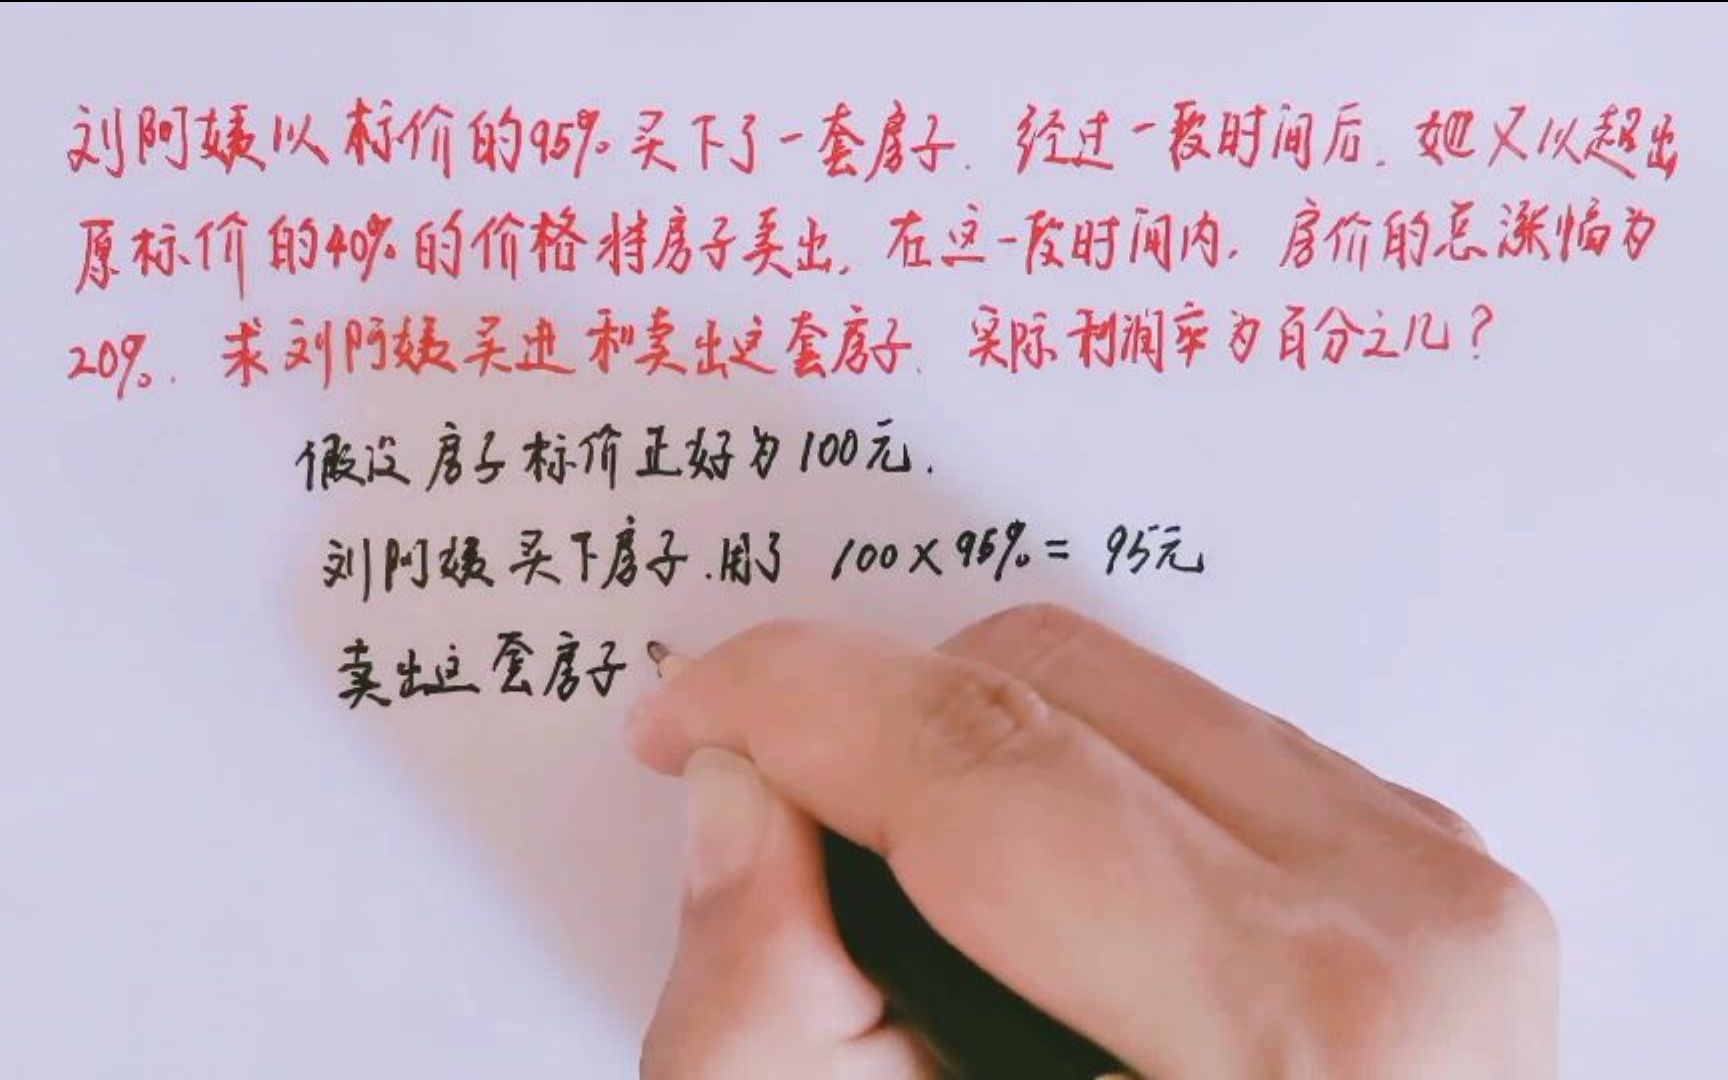 刘阿姨以标价的95%买下了一套房子.经过一段时间后.她又以超出
原标价的40%的价格将房子卖出.在这一段时间内.房价的总涨幅为
20%.求刘阿姨买进和卖出这套房子.实际利润率为百分之几?
假设房子标价正好为100元.
刘阿姨买下房子.用了 100×95%=95元
卖出这套房子